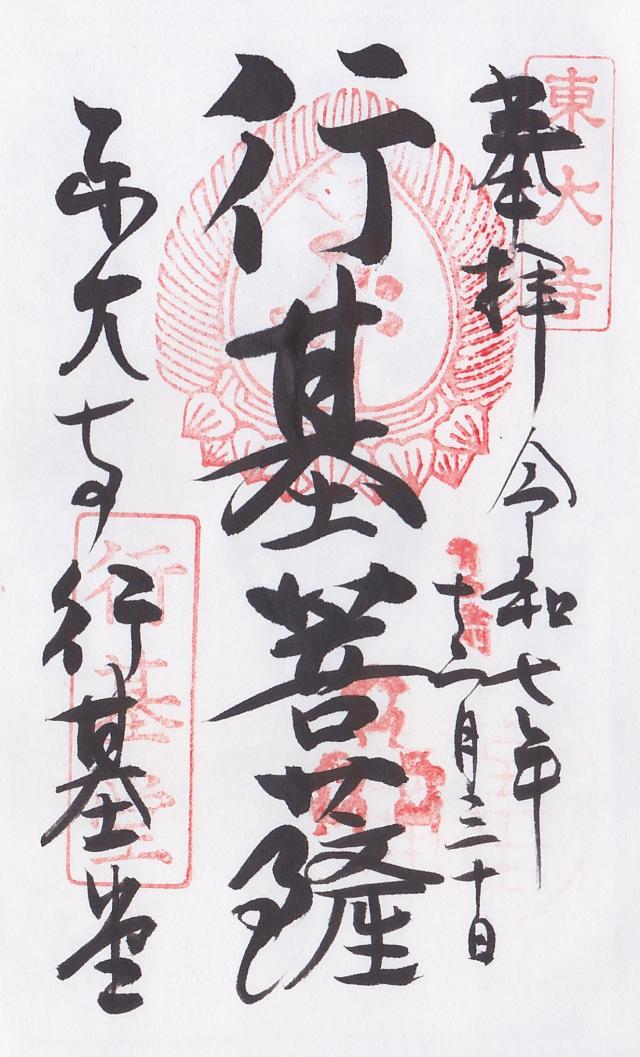 東大寺
奉拝
令和七年
十二月三十日
行基菩薩
東大寺行基堂
行基堂